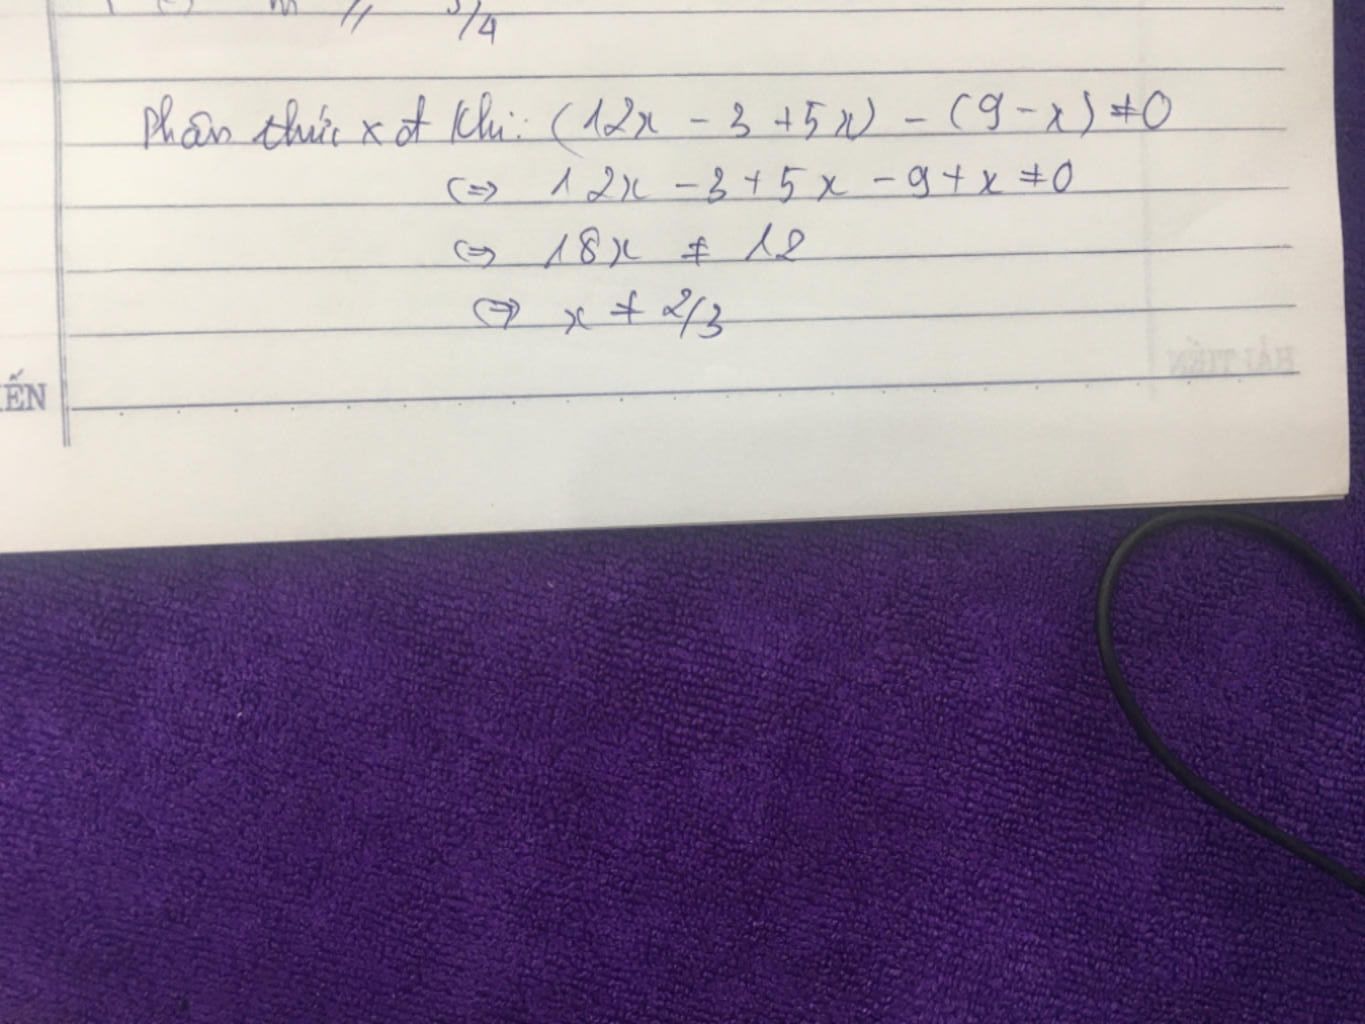 3/4
Phân thức xđ khi: (12x - 3 + 5x) - (9 - x) ≠ 0
<=> 12x - 3 + 5x - 9 + x ≠ 0
<=> 18x ≠ 12
<=> x ≠ 2/3
HẢI TIẾN
ẾN